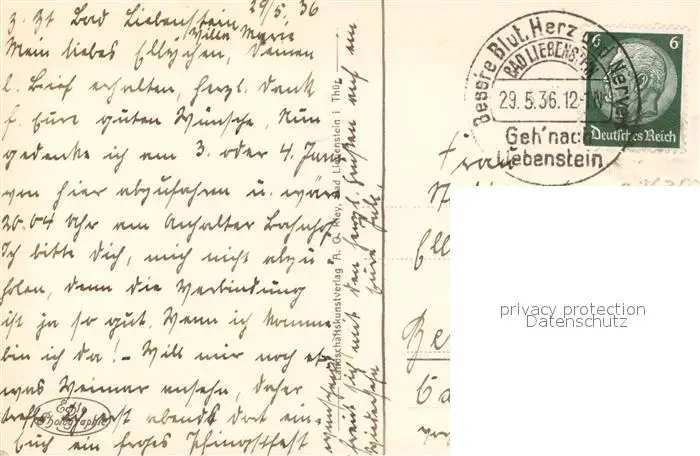 z. Zt Bad Liebenstein 29/5. 36
Villa Marie
Mein liebes Ellychen, Deinen
l. Brief erhalten, herzl. Dank
f. Eure guten Wünsche. Nun
gedenke ich am 3. oder 4. Juni
von hier abzufahren u. wäre
20.04 Uhr am Anhalter Bahnhof
Ich bitte Dich, mich nicht abzu
holen, denn die Verbindung
ist ja so gut. Wenn ich komme
bin ich da! – Will mir noch et
was Weimar ansehn, daher
treffe ich erst abends dort ein.
Euch ein frohes Pfingstfest
wünschend
freue ich mich den herzl. Grüßen auf ein
Wiedersehn Eure
Echte Photographie
Landschaftskunstverlag A. O. Rley, Bad Liebenstein i. Thür.
Bessre Blut, Herz und Nerven
BAD LIEBENSTEIN
29.5.36.12-1N
Geh' nach
Liebenstein
6 6
Deutsches Reich
Frau
privacy protection
Datenschutz